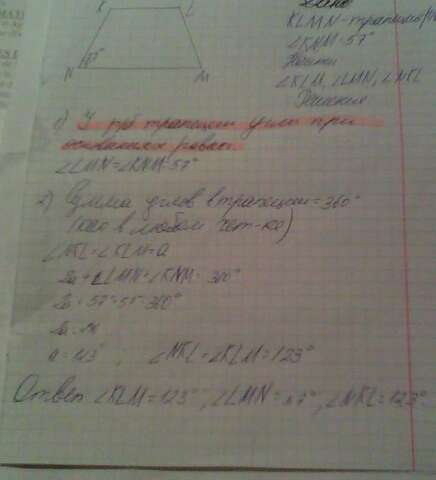 K L
Дано
KLMN - трапеция
∠KNM = 57°
Найти
∠KLM, ∠LMN, ∠NKL
N 57° M
Решение
1) У р/б трапеции углы при
основаниях равны.
∠LMN = ∠KNM = 57°
2) Сумма углов в трапеции = 360°
(как в любом чет-ке)
∠NKL = ∠KLM = a
2a + ∠LMN + ∠KNM = 360°
a = 123°, ∠NKL = ∠KLM = 123°
Ответ ∠KLM = 123°, ∠LMN = 57°, ∠NKL = 123°